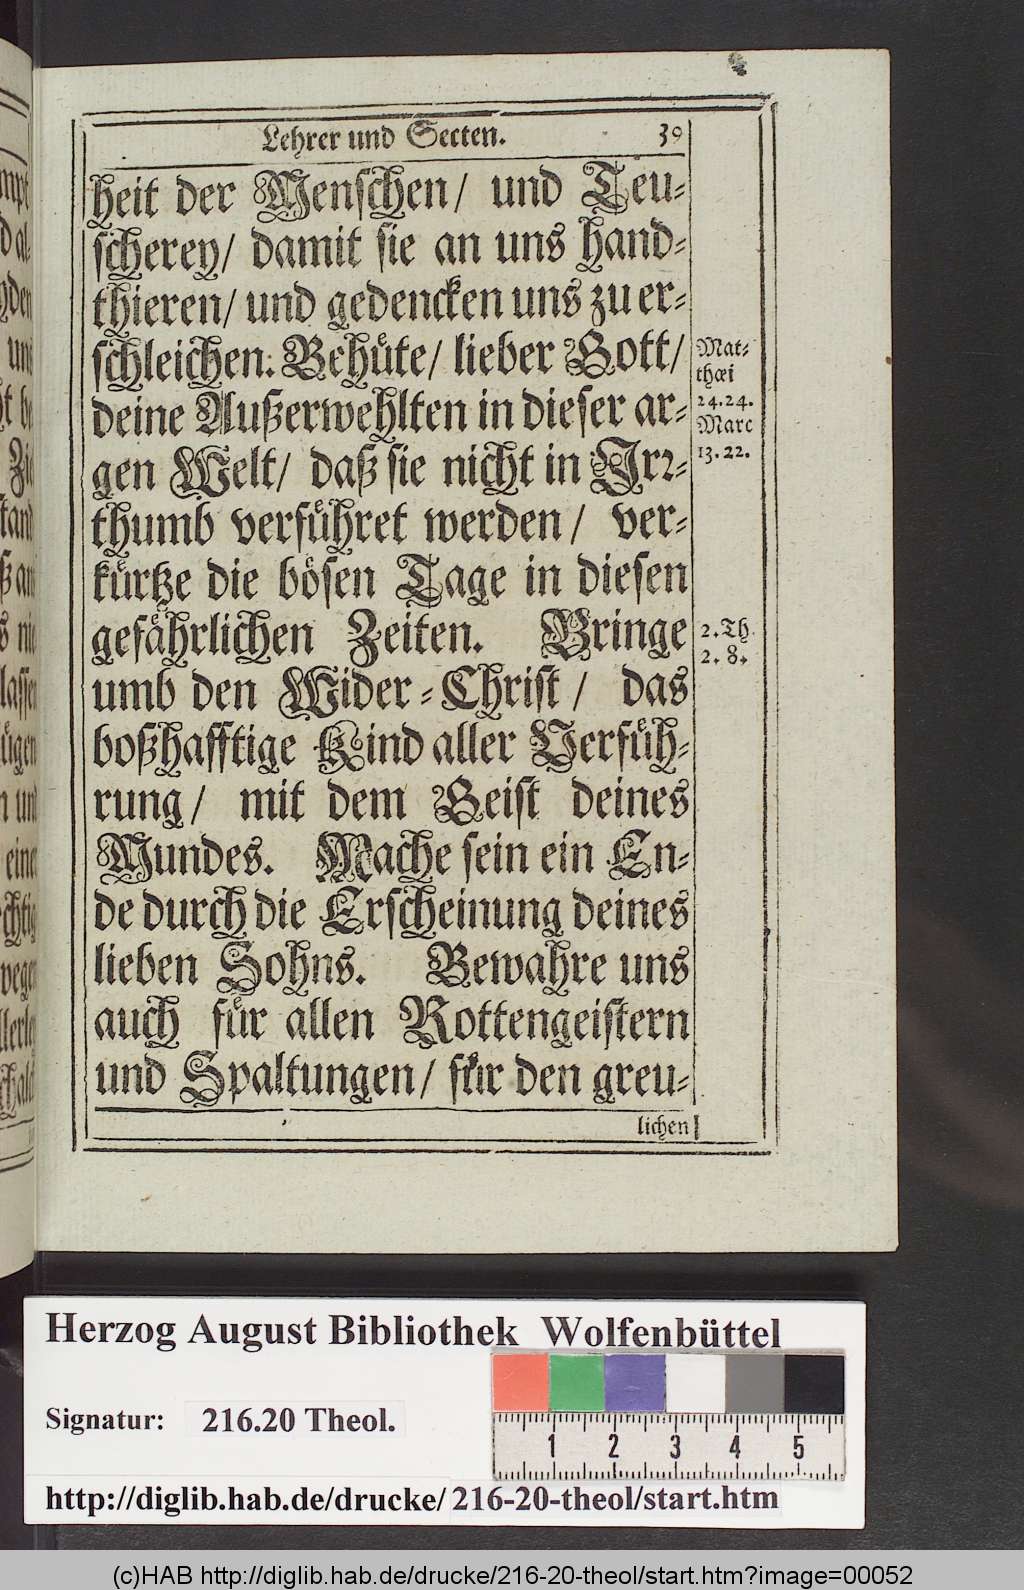 Lehrer und Secten. 39
heit der Menschen / und Teu-
scherey / damit sie an uns hand-
thieren / und gedencken uns zu er-
schleichen. Behüte / lieber Gott /
deine Außerwehlten in dieser ar-
gen Welt / daß sie nicht in Irr-
thumb verführet werden / ver-
kürtze die bösen Tage in diesen
gefährlichen Zeiten. Bringe
umb den Wider-Christ / das
boßhafftige Kind aller Verfüh-
rung / mit dem Geist deines
Mundes. Mache sein ein En-
de durch die Erscheinung deines
lieben Sohns. Bewahre uns
auch für allen Rottengeistern
und Spaltungen / für den greu-
lichen
Mat-
thæi
24.24.
Marc
13.22.
2. Th
2. 8.
Herzog August Bibliothek Wolfenbüttel
Signatur: 216.20 Theol.
1 2 3 4 5
http://diglib.hab.de/drucke/216-20-theol/start.htm
(c)HAB http://diglib.hab.de/drucke/216-20-theol/start.htm?image=00052